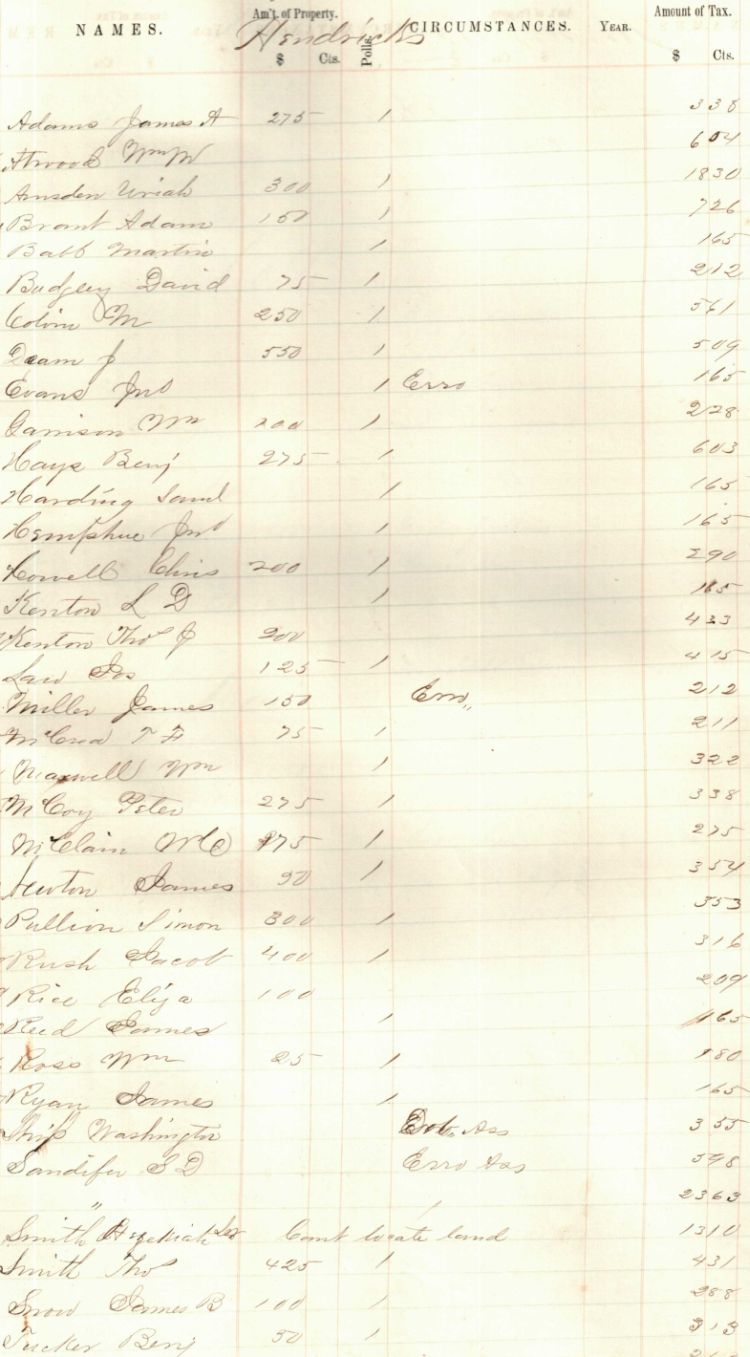 NAMES. Am't. of Property. $ Cts. Polls. CIRCUMSTANCES. YEAR. Amount of Tax. $ Cts.
Hendricks
Adams James A 275 1 338
Atwood Wm W 604
Amsden Uriah 300 1 1830
Brant Adam 150 1 726
Babb Martin 1 165
Badgley David 75 1 212
Colvin M 250 1 561
Deam J 550 1 509
Evans Jno 1 Erro 165
Garrison Wm 200 1 228
Hays Benj 275 1 603
Harding Saml 1 165
Jno 1 165
Howell Chris 200 1 290
Kenton L D 1 165
Kenton Thos J 200 433
Law 125 1 415
Miller James 150 Erro,, 212
McCrea T F 75 1 211
Maxwell Wm 1 322
McCoy Peter 275 1 338
McClain W C 175 1 275
Newton James 90 1 354
Pullion Simon 300 1 353
Rush Jacob 400 1 316
Rice Eliza 100 209
Reed James 1 165
Ross Wm 25 1 180
Ryan James 1 165
Ship Washington Ass 355
Sandifer S D Erro Ass 598
" 2363
Smith Hezekiah Cant locate land 1310
Smith Thos 425 1 431
Snow James B 100 1 288
Tucker Benj 50 1 313